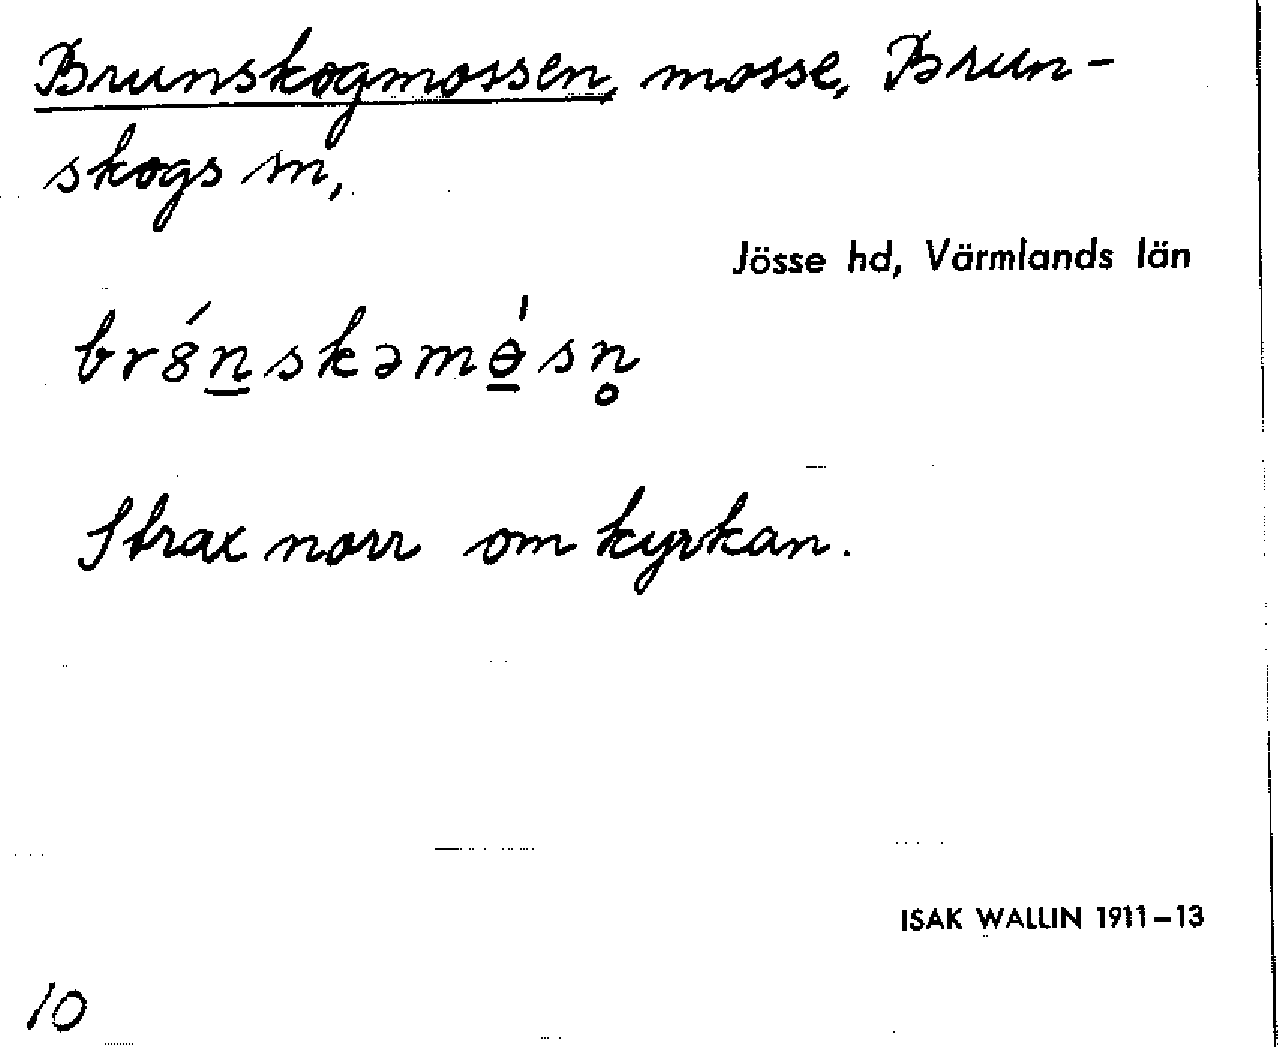 Brunskogmossen, mosse, Brun-
skogs sn,
Jösse hd, Värmlands län
br8́n̲skəmɵ̲́sn̥
Strax norr om kyrkan.
ISAK WALLIN 1911–13
10